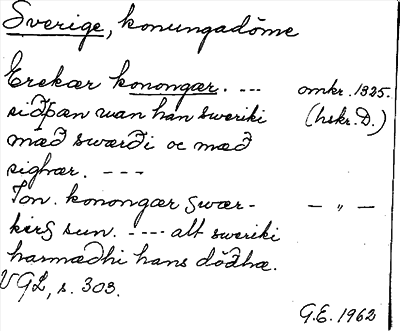 Sverige, konungadöme
Erekær konongær. --- omkr. 1325.
siðþæn wan han sweriki (hskr. D.)
mæð swærði oc mæð
sighær. ---
Ion. konongær swær- — „ —
kers sun. ---- alt sweriki
harmæðhi hans döðhæ.
VGL, s. 303.
G.E. 1962